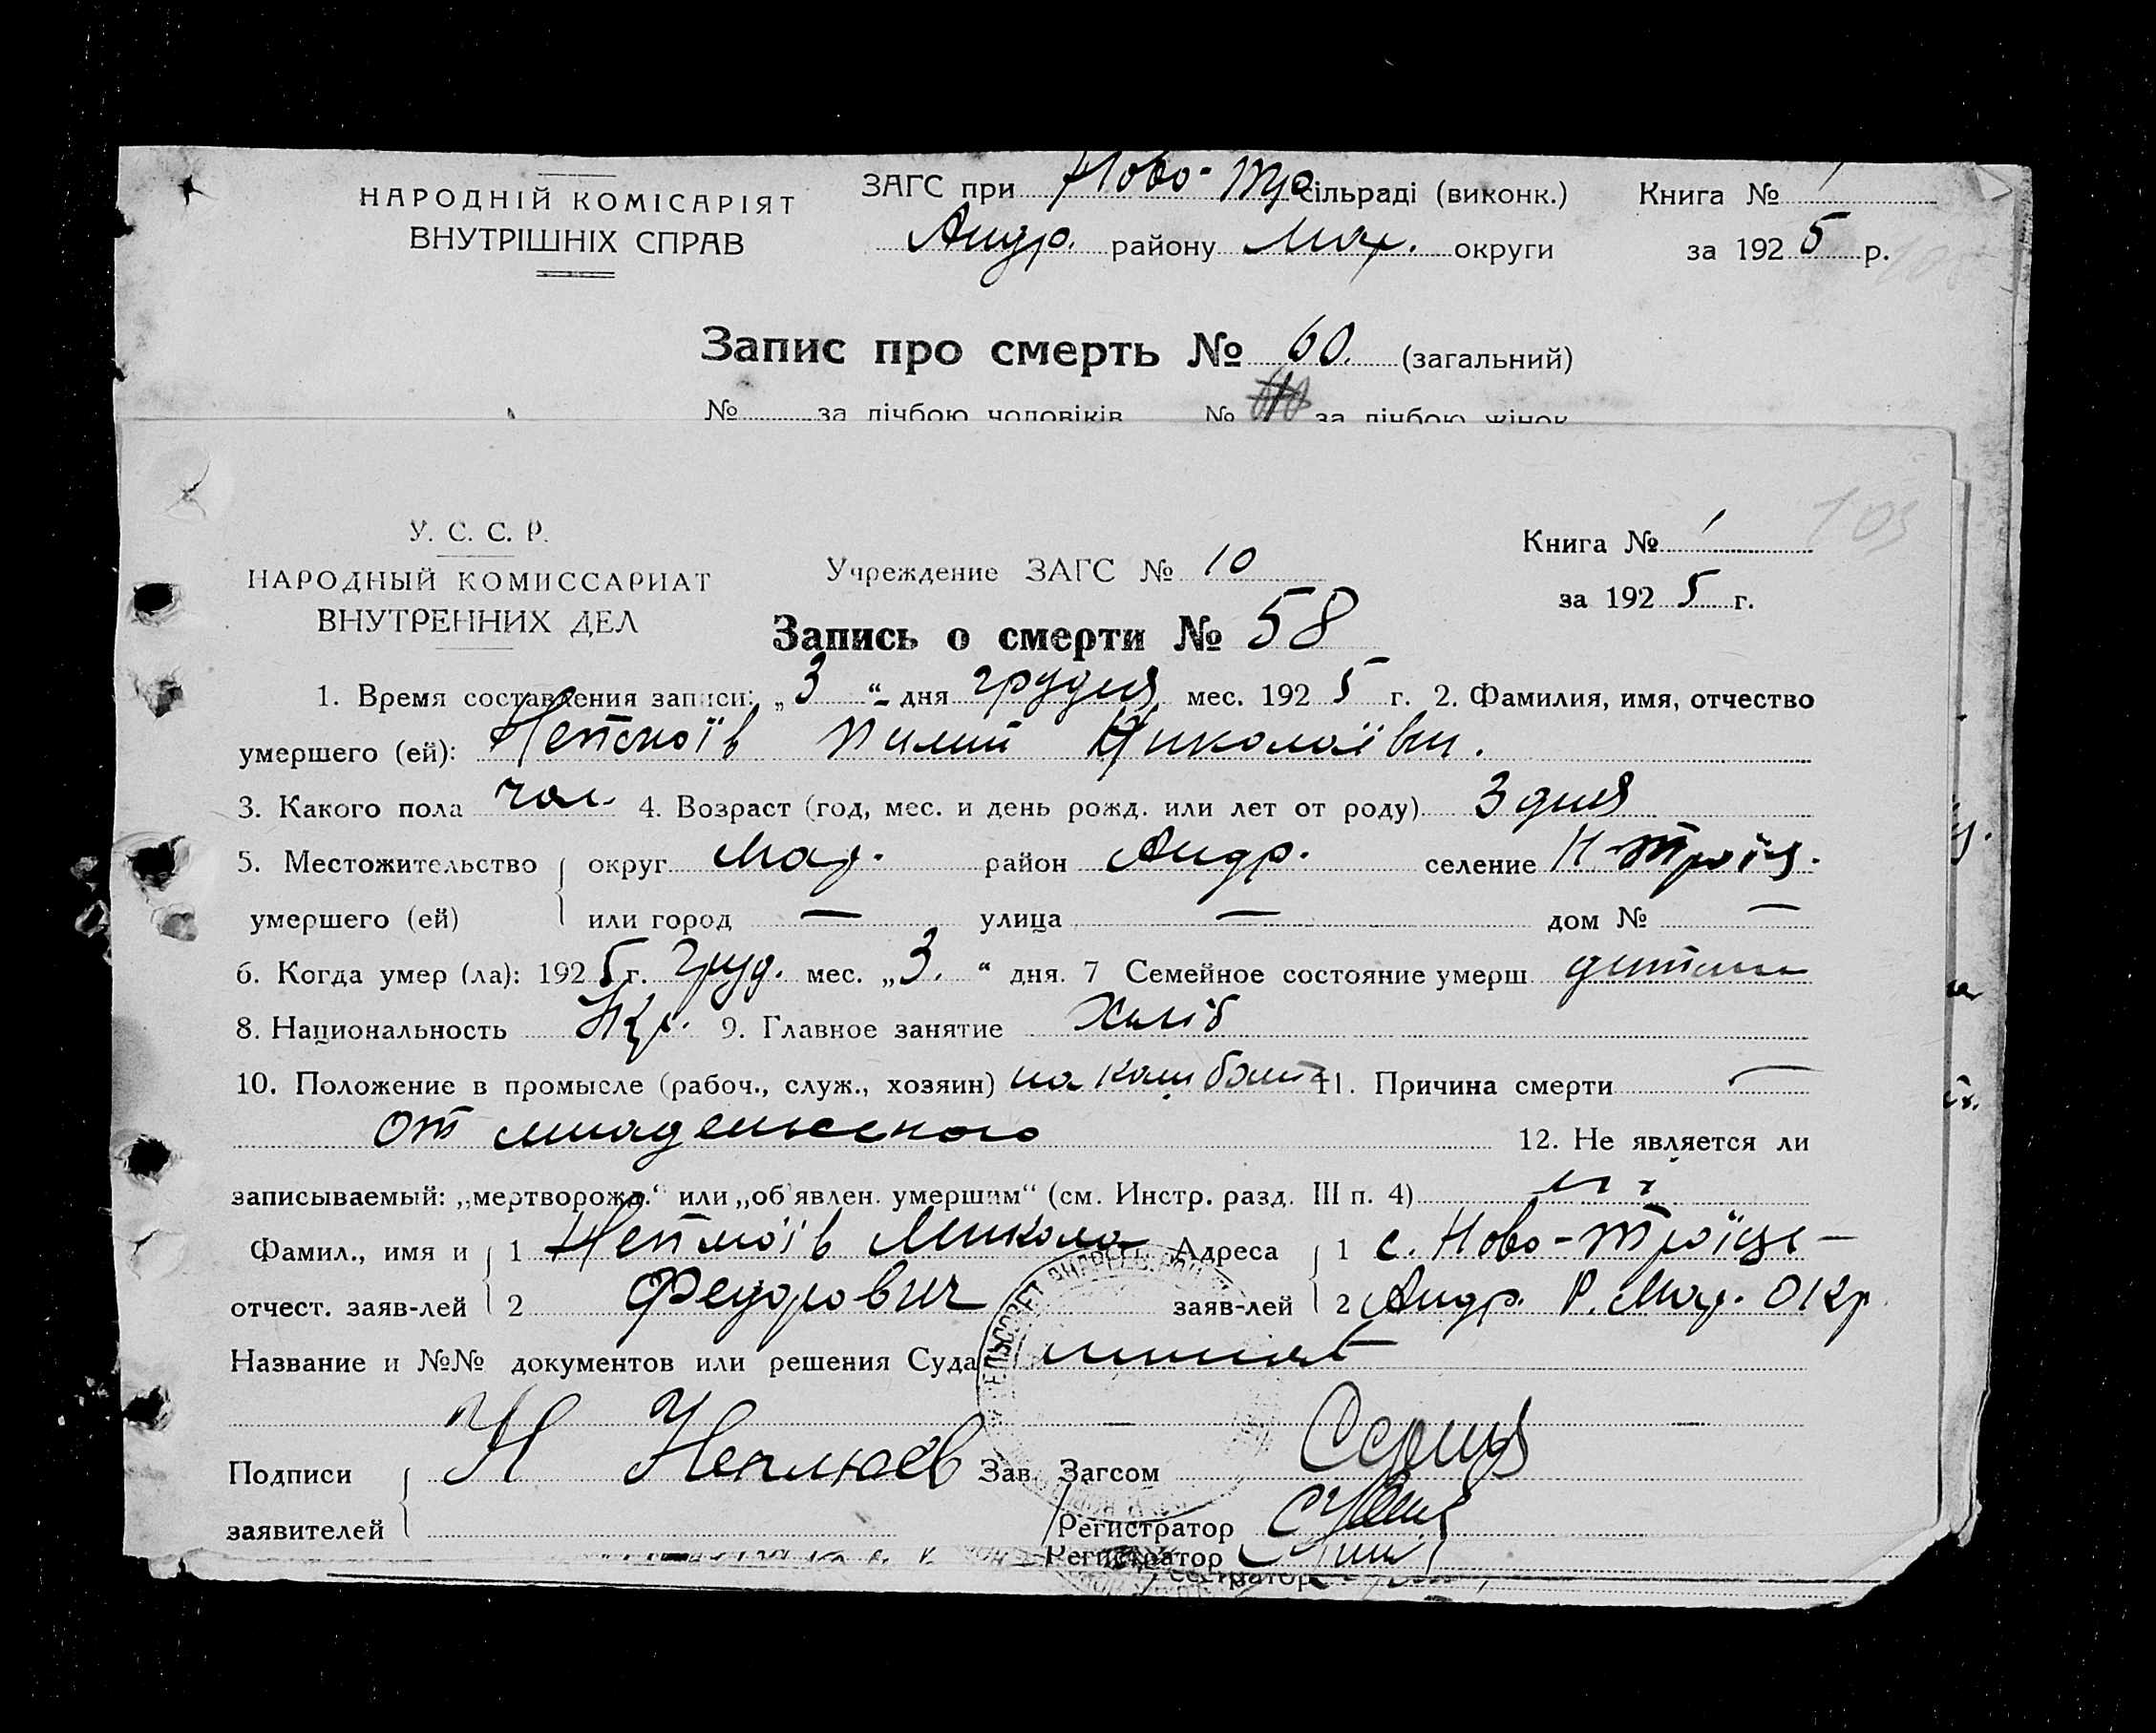 НАРОДНІЙ КОМІСАРІЯТ
ВНУТРІШНІХ СПРАВ
ЗАГС при Ново-Тро сільраді (виконк.)
Андр. району Мар. округи
Книга № 1
за 1925 р.
Запис про смерть № 60. (загальний)
№ за лічбою чоловіків № за лічбою жінок
103
У. С. С. Р.
НАРОДНЫЙ КОМИССАРИАТ
ВНУТРЕННИХ ДЕЛ
Учреждение ЗАГС № 10
Книга № 1
за 1925 г.
Запись о смерти № 58
1. Время составления записи: „3“ дня грудня мес. 1925 г. 2. Фамилия, имя, отчество
умершего (ей): Неплюїв Николаївн.
3. Какого пола чол. 4. Возраст (год, мес. и день рожд. или лет от роду) 3 дня
5. Местожительство округ Мар. район Андр. селение Н-Троїц.
умершего (ей) или город — улица — дом № —
6. Когда умер (ла): 1925 г. Груд. мес. „3.“ дня. 7 Семейное состояние умерш дитина
8. Национальность Укр. 9. Главное занятие Хліб
10. Положение в промысле (рабоч., служ., хозяин) на 11. Причина смерти —
от младенческого 12. Не является ли
записываемый: „мертворожд.“ или „об'явлен. умершим“ (см. Инстр. разд. III п. 4) ні
Фамил., имя и 1 Неплюїв Микола Адреса 1 с. Ново-Троїцьк
отчест. заяв-лей 2 Федорович заяв-лей 2 Андр. Р. Мар. Окр
Название и №№ документов или решения Суда
Подписи Н Неплюев Зав. Загсом
заявителей Регистратор
Регистратор